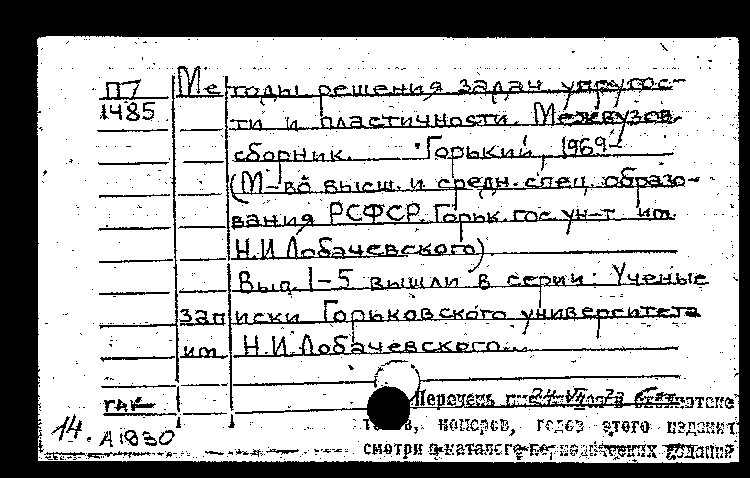 П7 Методы решения задач упругос-
1485 ти и пластичности. Межвузов.
сборник. Горький, 1969-
(М-во высш. и средн. спец. образо-
вания РСФСР. Горьк. гос. ун-т им.
Н.И. Лобачевского).
Вып. 1-5 вышли в серии: Ученые
записки Горьковского университета
им. Н.И. Лобачевского...
Перечень
номеров, годов этого издания
14. А1830 смотри в каталоге периодических изданий